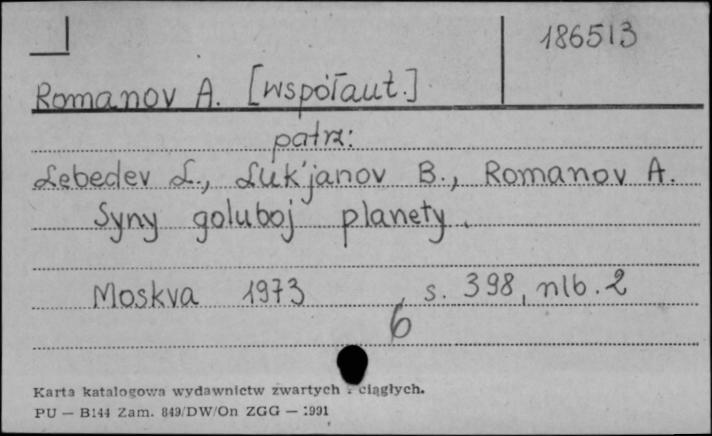 186513
Romanov A. [współaut.]
patrz:
Lebedev L., Luk'janov B., Romanov A.
Syny goluboj planety.
Moskva 1973, s. 398, nlb. 2
6
Karta katalogowa wydawnictw zwartych i ciągłych.
PU — B144 Zam. 849/DW/On ZGG — 1991